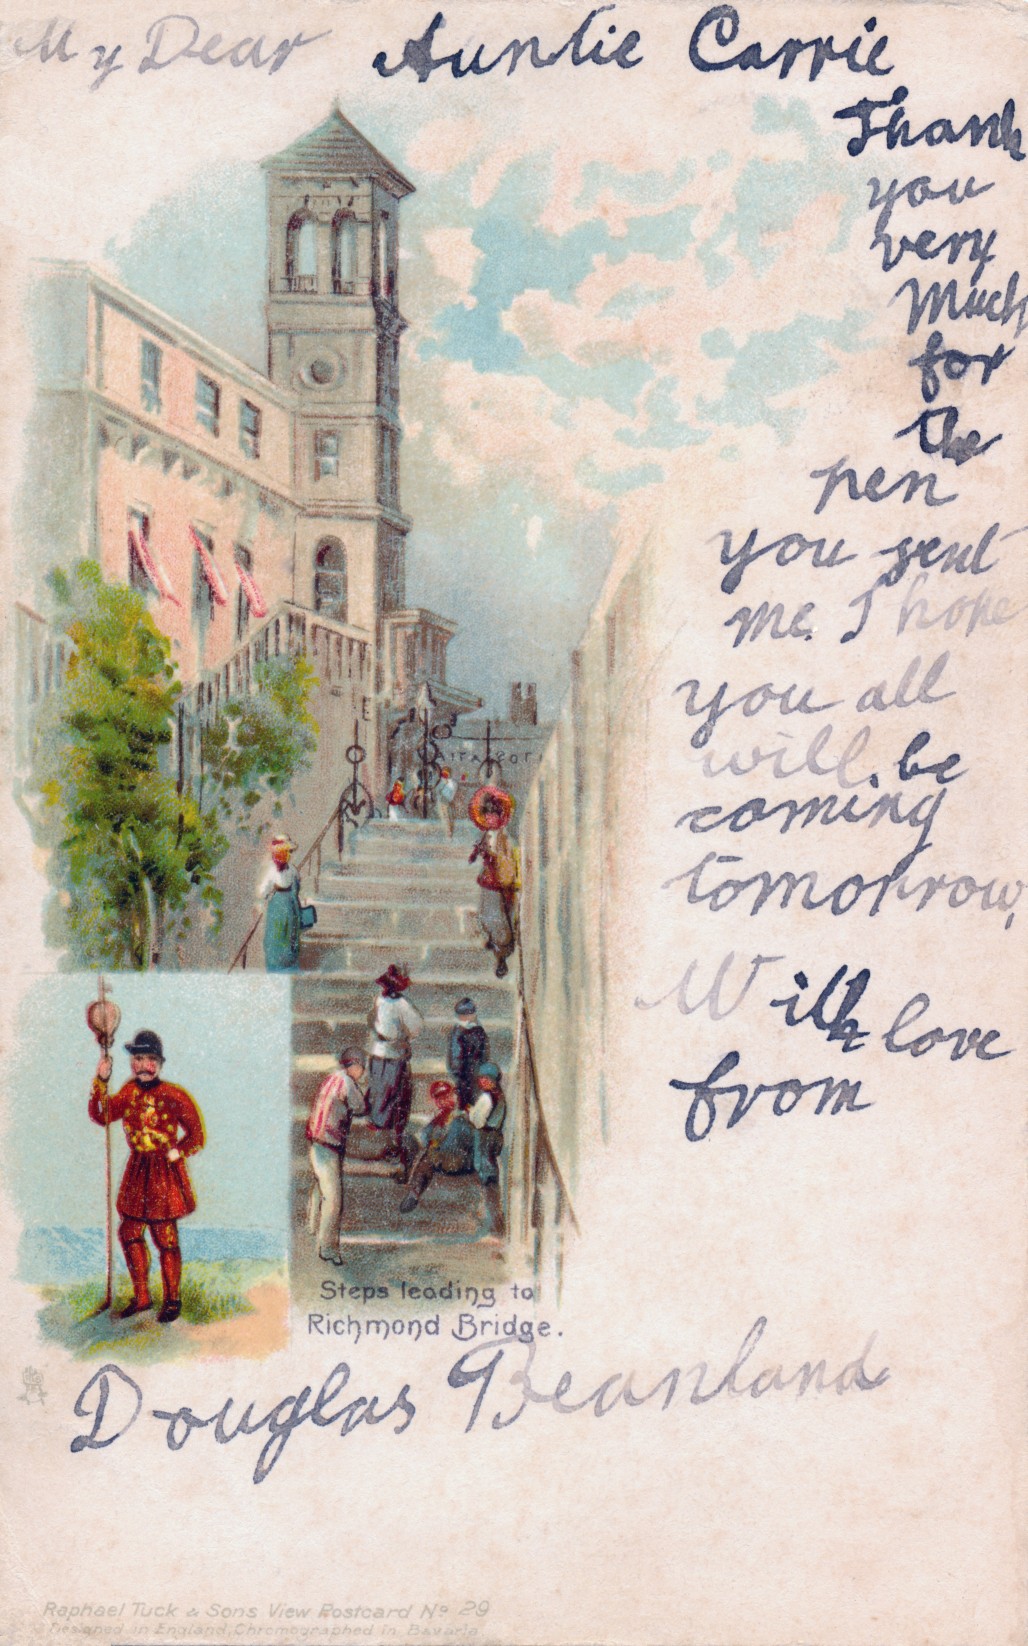 My Dear Auntie Carrie
Thank
you
very
Much
for
the
pen
you sent
me. I hope
you all
will be
coming
tomorrow,
With love
from
Steps leading to
Richmond Bridge.
Douglas Beanland
Raphael Tuck & Sons View Postcard No 29
Designed in England, Chromographed in Bavaria.